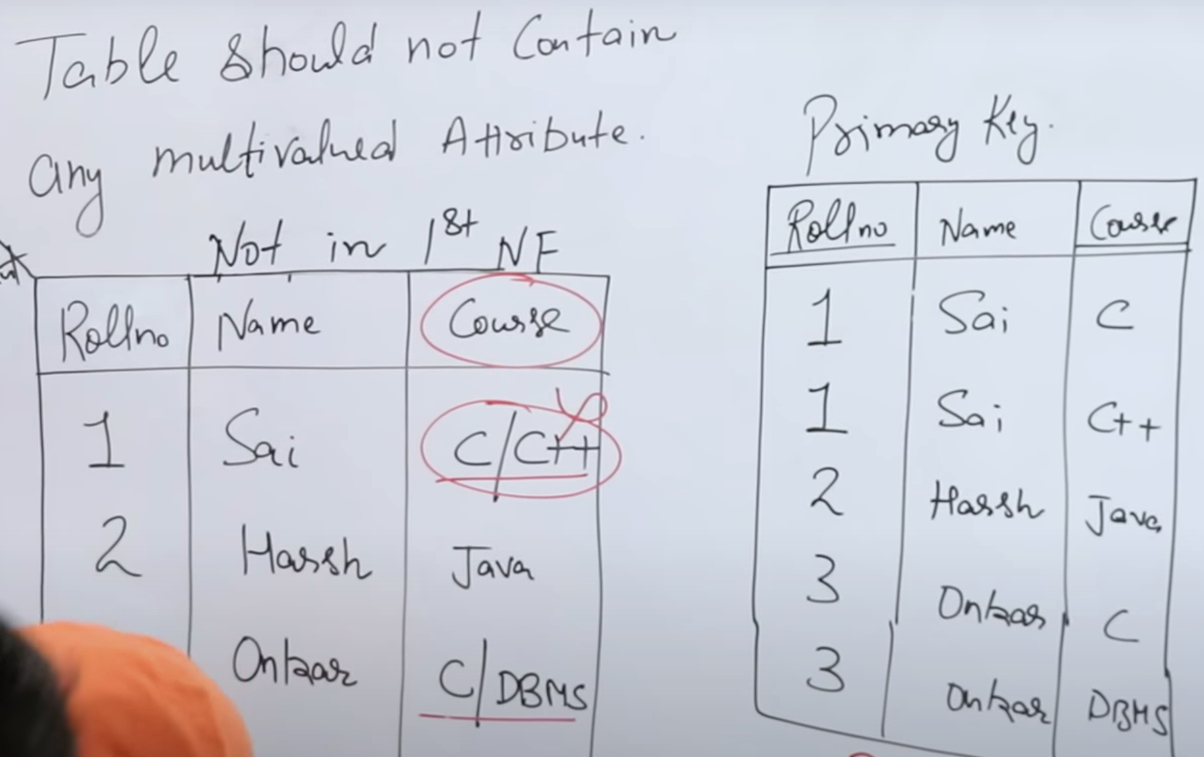 Table should not Contain
any multivalued Attribute.
Not in 1st NF
Rollno Name Course
1 Sai C/C++
2 Harsh Java
Onkar C/DBMS
Primary Key.
Rollno Name Course
1 Sai C
1 Sai C++
2 Harsh Java
3 Onkar C
3 Onkar DBMS